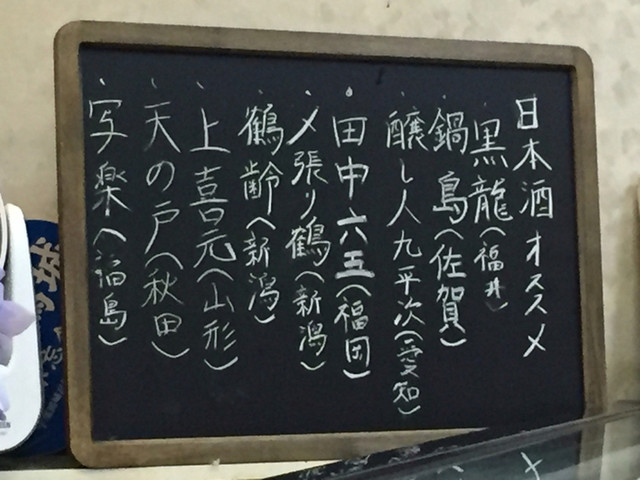 日本酒オススメ
・黒龍(福井)
・鍋島(佐賀)
・醸し人九平次(愛知)
・田中六五(福岡)
・〆張り鶴(新潟)
・鶴齢(新潟)
・上喜元(山形)
・天の戸(秋田)
・写楽(福島)